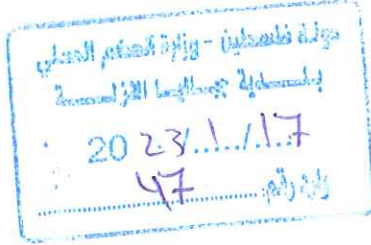 دولة فلسطين - وزارة الحكم المحلي
بلدية جباليا النزلة
2023/1/17
وارد رقم: 47